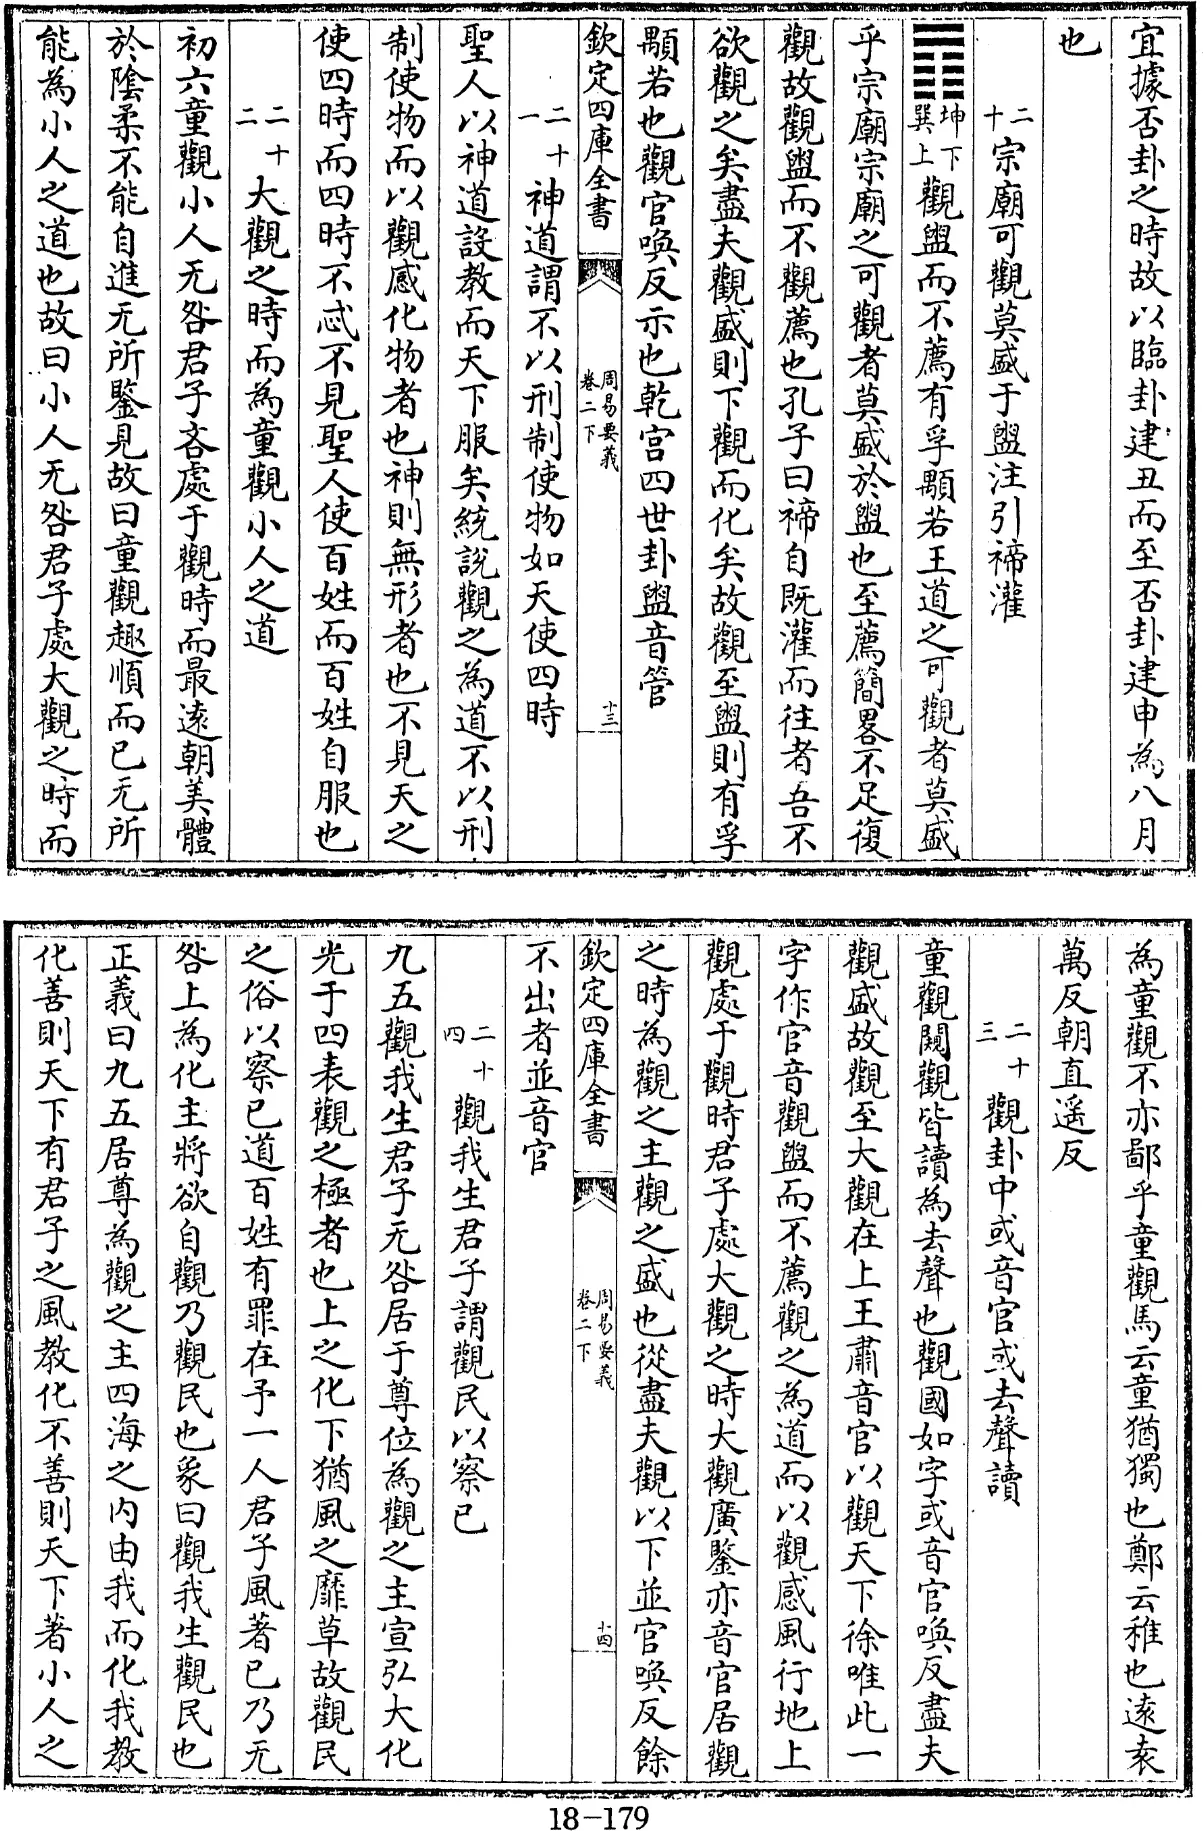 宜據否卦之時故以臨卦建丑而至否卦建申為八月
也
二十 宗廟可觀莫盛于盥注引禘灌
坤下巽上 觀盥而不薦有孚顒若王道之可觀者莫盛
乎宗廟宗廟之可觀者莫盛於盥也至薦簡畧不足復
觀故觀盥而不觀薦也孔子曰禘自既灌而往者吾不
欲觀之矣盡夫觀盛則下觀而化矣故觀至盥則有孚
顒若也觀官喚反示也乾宫四世卦盥音管
欽定四庫全書 周易要義卷二下 十三
二十一 神道謂不以刑制使物如天使四時
聖人以神道設教而天下服矣統說觀之為道不以刑
制使物而以觀感化物者也神則無形者也不見天之
使四時而四時不忒不見聖人使百姓而百姓自服也
二十二 大觀之時而為童觀小人之道
初六童觀小人无咎君子吝處于觀時而最逺朝美體
於陰柔不能自進无所鑒見故曰童觀趣順而已无所
能為小人之道也故曰小人无咎君子處大觀之時而
為童觀不亦鄙乎童觀馬云童猶獨也鄭云稚也逺袁
萬反朝直遥反
二十三 觀卦中或音官或去聲讀
童觀闚觀皆讀為去聲也觀國如字或音官喚反盡夫
觀盛故觀至大觀在上王肅音官以觀天下徐唯此一
字作官音觀盥而不薦觀之為道而以觀感風行地上
觀處于觀時君子處大觀之時大觀廣鑒亦音官居觀
之時為觀之主觀之盛也從盡夫觀以下並官喚反餘
不出者並音官
欽定四庫全書 周易要義卷二下 十四
二十四 觀我生君子謂觀民以察已
九五觀我生君子无咎居于尊位為觀之主宣弘大化
光于四表觀之極者也上之化下猶風之靡草故觀民
之俗以察已道百姓有罪在予一人君子風著已乃无
咎上為化主將欲自觀乃觀民也象曰觀我生觀民也
正義曰九五居尊為觀之主四海之内由我而化我教
化善則天下有君子之風教化不善則天下著小人之
18-179